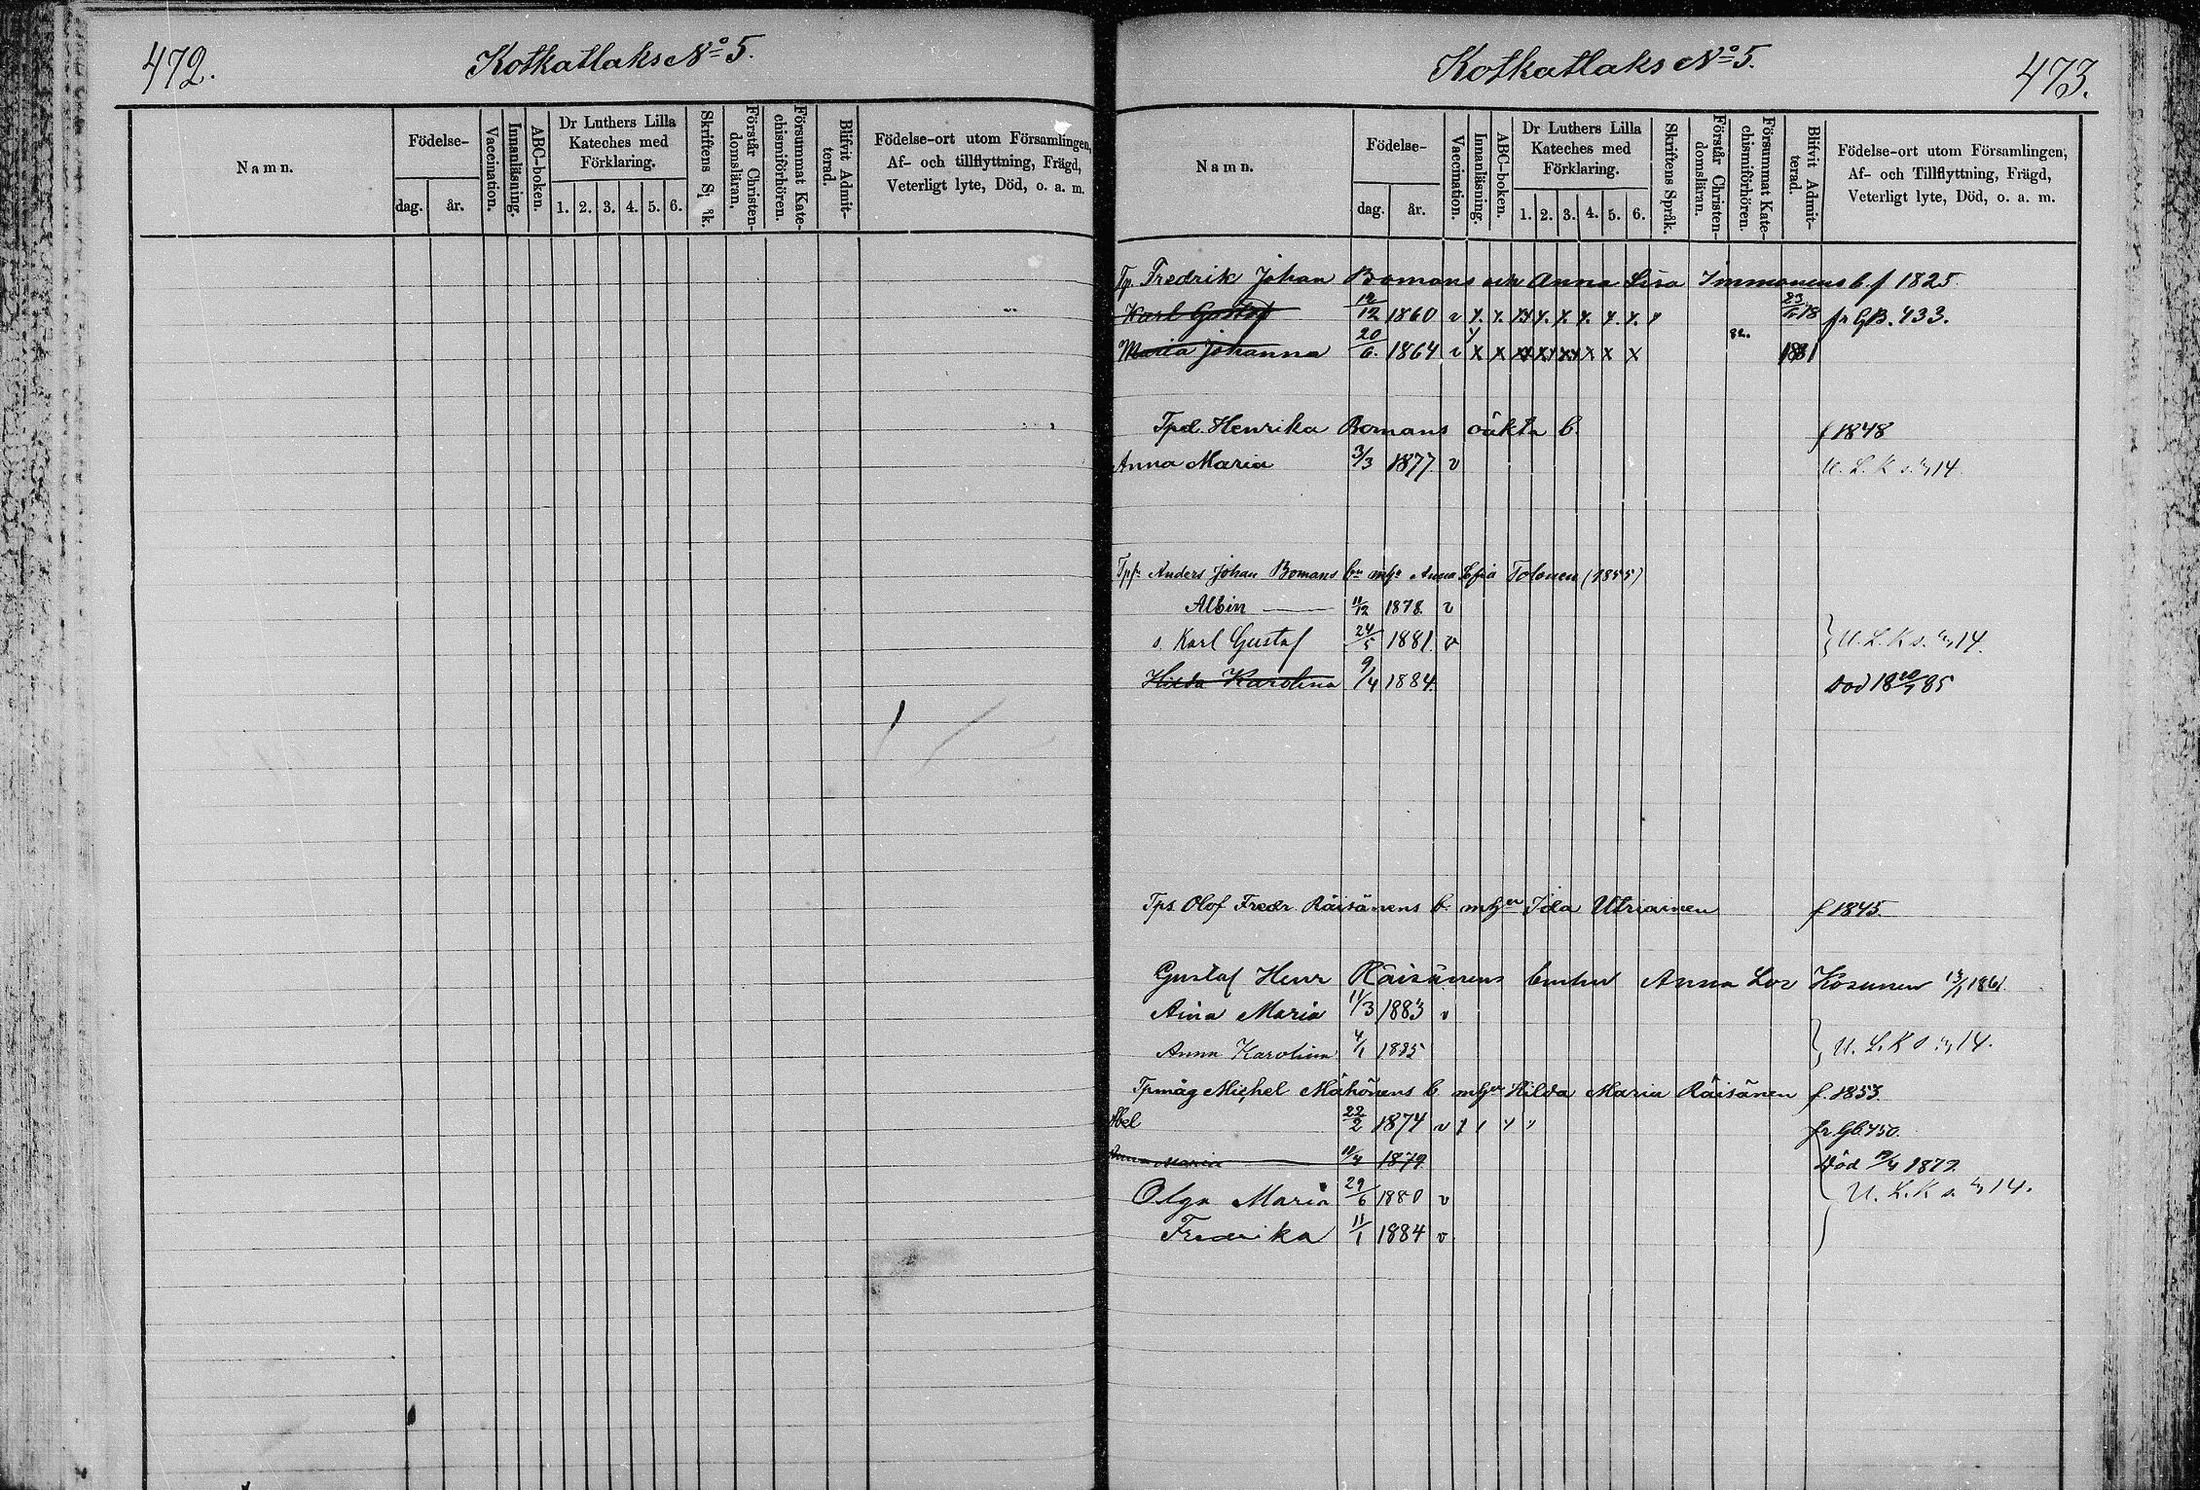 472.
Kotkatlaks No 5.
Namn.
Födelse-
dag. år.
Vaccination.
Innanläsning.
ABC-boken.
Dr Luthers Lilla
Kateches med
Förklaring.
1. 2. 3. 4. 5. 6.
Skriftens Språk.
Förstår Christen-
domsläran.
Försummat Kate-
chismiförhören.
Blifvit Admit-
terad.
Födelse-ort utom Församlingen,
Af- och tillflyttning, Frägd,
Veterligt lyte, Död, o. a. m.
Kotkatlaks No 5.
473.
Namn.
Födelse-
dag. år.
Vaccination.
Innanläsning.
ABC-boken.
Dr Luthers Lilla
Kateches med
Förklaring.
1. 2. 3. 4. 5. 6.
Skriftens Språk.
Förstår Christen-
domsläran.
Försummat Kate-
chismiförhören.
Blifvit Admit-
terad.
Födelse-ort utom Församlingen,
Af- och Tillflyttning, Frägd,
Veterligt lyte, Död, o. a. m.
Tp. Fredrik Johan Bomans och Anna Lisa Immonens b. f 1825.
Karl Gustaf 12 1860 v fr GB. 433.
Maria Johanna 20/6. 1864 v x x x x x 1881
Tpd. Henrika Bomans oäkta b. f 1848
Anna Maria 3/3 1877 v U. L. K s. 14.
Tps. Anders Johan Bomans bn m hu Anna Sofia Tolonen (1855)
Albin 11/12 1878. v
s. Karl Gustaf 24/5 1881. v U. L. K s. 14.
Hilda Karolina 9/4 1884. Död 18 20/7 85
Tps. Olof Fredr Räisänens b. m hu Ida Utriainen f 1845.
Gustaf Henr Räisänens Anna Lov Kosunen 13/1 1861.
Aina Maria 11/3 1883 v
Anna Karolina 4/1 1885 U. L. K s. 14.
Tpmåg Michel Mähönens b. m hu Hilda Maria Räisänen f. 1853.
Abel 22/2 1874 v fr. Gb. 450.
Anna Maria 1879 Död 1879.
Olga Maria 29/6 1880 v U. L. K s. 14.
Fredrika 11/1 1884 v